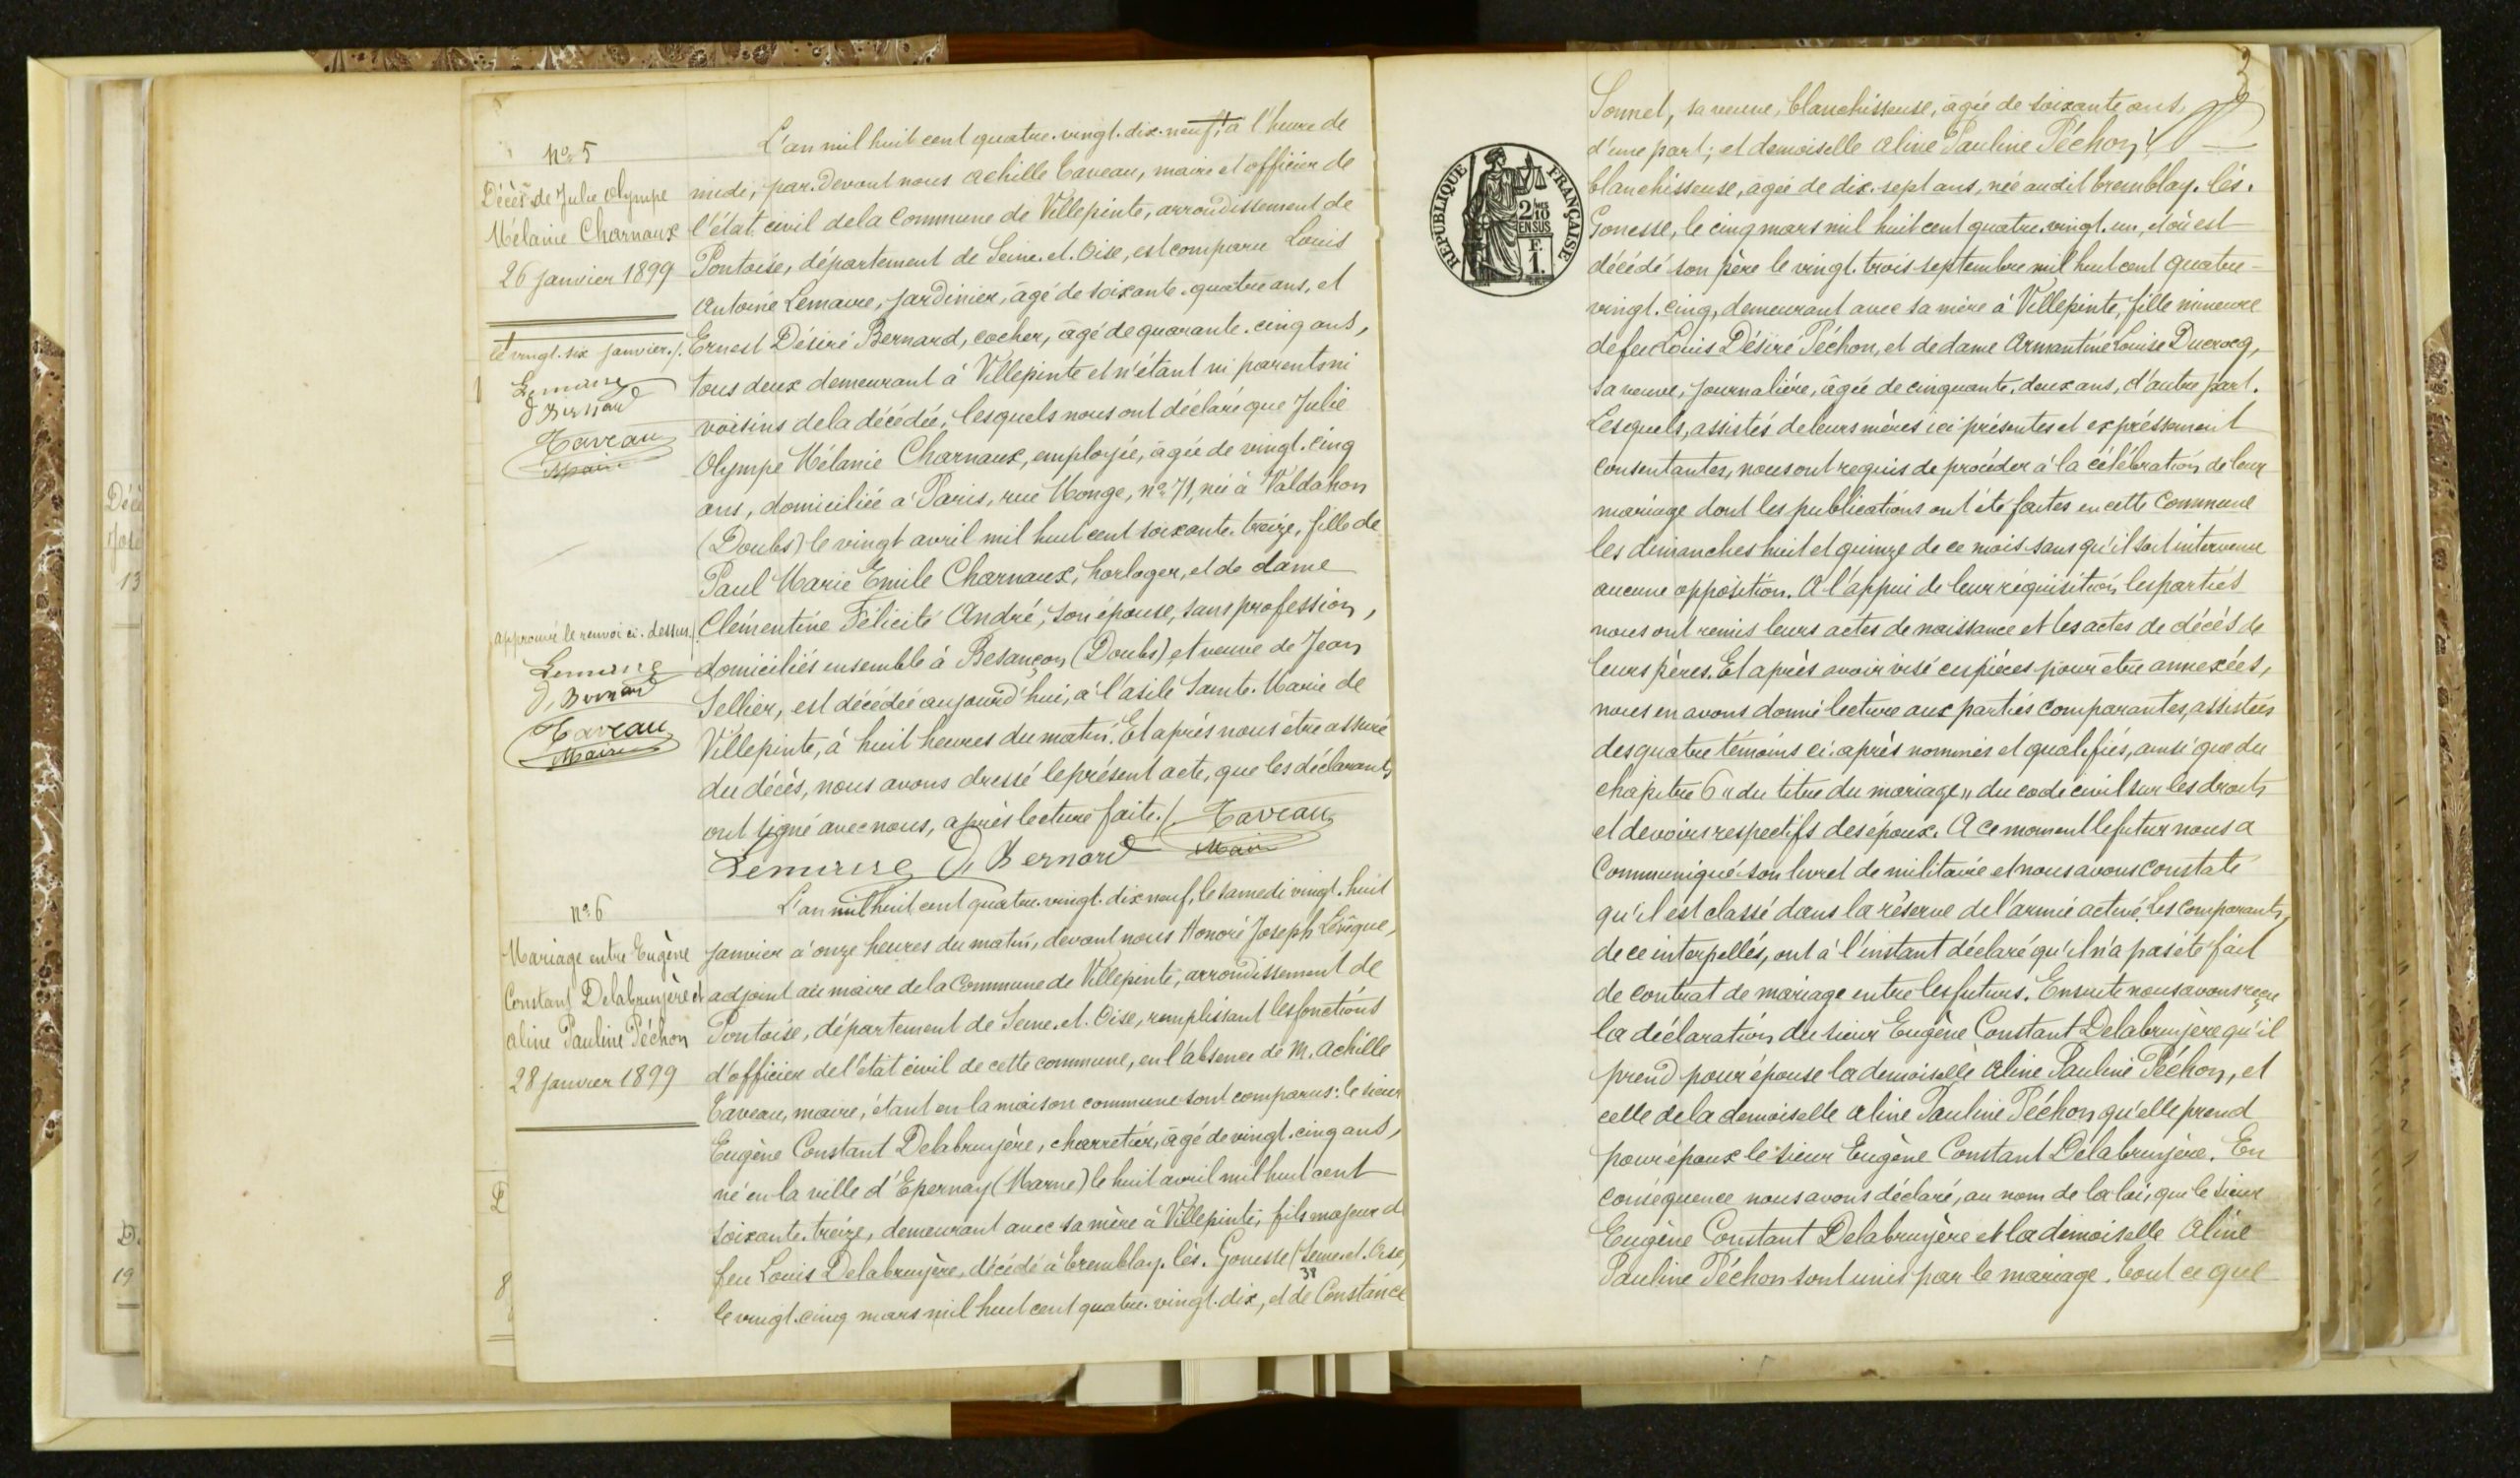 N° 5
Décès de Julie Olympe
Mélanie Charnaux
26 janvier 1899
le vingt-six janvier./.
Lemaire
D. Bernard
Taveau
Maire
approuvé le renvoi ci-dessus./.
Lemaire
D. Bernard
Taveau
Maire
L'an mil huit cent quatre-vingt-dix-neuf, à l'heure de
midi, par-devant nous Achille Taveau, maire et officier de
l'état civil de la Commune de Villepinte, arrondissement de
Pontoise, département de Seine-et-Oise, est comparu Louis
Antoine Lemaire, jardinier, âgé de soixante-quatre ans, et
Ernest Désiré Bernard, cocher, âgé de quarante-cinq ans,
tous deux demeurant à Villepinte et n'étant ni parents ni
voisins de la décédée, lesquels nous ont déclaré que Julie
Olympe Mélanie Charnaux, employée, âgée de vingt-cinq
ans, domiciliée à Paris, rue Monge, n° 71, née à Valdahon
(Doubs) le vingt avril mil huit cent soixante-treize, fille de
Paul Marie Emile Charnaux, horloger, et de dame
Clémentine Félicité André, son épouse, sans profession,
domiciliés ensemble à Besançon (Doubs), et veuve de Jean
Sellier, est décédée aujourd'hui, à l'asile Sainte-Marie de
Villepinte, à huit heures du matin. Et après nous être assuré
du décès, nous avons dressé le présent acte, que les déclarants
ont signé avec nous, après lecture faite./.
Taveau
Maire
Lemaire D. Bernard
N° 6
Mariage entre Eugène
Constant Delabruyère et
Aline Pauline Péchon
28 janvier 1899
L'an mil huit cent quatre-vingt-dix neuf, le samedi vingt-huit
janvier à onze heures du matin, devant nous Honoré Joseph Lévêque,
adjoint au maire de la Commune de Villepinte, arrondissement de
Pontoise, département de Seine-et-Oise, remplissant les fonctions
d'officier de l'état civil de cette commune, en l'absence de M. Achille
Taveau, maire, étant en la maison commune sont comparus: le sieur
Eugène Constant Delabruyère, charretier, âgé de vingt-cinq ans,
né en la ville d'Epernay (Marne) le huit avril mil huit cent
soixante-treize, demeurant avec sa mère à Villepinte, fils majeur de
feu Louis Delabruyère, décédé à Tremblay-lès-Gonesse (Seine-et-Oise)
le vingt-cinq mars mil huit cent quatre-vingt-dix, et de Constance
3
RÉPUBLIQUE FRANÇAISE
2/10 EN SUS
F. 1.
Sonnet, sa veuve, blanchisseuse, âgée de soixante ans,
d'une part; et demoiselle Aline Pauline Péchon,
blanchisseuse, âgée de dix-sept ans, née audit Tremblay-lès-
Gonesse, le cinq mars mil huit cent quatre-vingt-un, et où est
décédé son père le vingt-trois septembre mil huit cent quatre-
vingt-cinq, demeurant avec sa mère à Villepinte, fille mineure
de feu Louis Désiré Péchon, et de dame Armantine Louise Ducrocq,
sa veuve, journalière, âgée de cinquante-deux ans, d'autre part.
Lesquels, assistés de leurs mères ici présentes et expréssement
consentantes, nous ont requis de procéder à la célébration de leur
mariage dont les publications ont été faites en cette Commune
les dimanches huit et quinze de ce mois sans qu'il soit intervenu
aucune opposition. A l'appui de leur réquisition, les parties
nous ont remis leurs actes de naissance et les actes de décès de
leurs pères. Et après avoir visé ces pièces pour être annexées,
nous en avons donné lecture aux parties comparantes, assistées
des quatre témoins ci-après nommés et qualifiés, ainsi que du
chapitre 6 "du titre du mariage" du code civil sur les droits
et devoirs respectifs des époux. A ce moment le futur nous a
communiqué son livret de militaire et nous avons constaté
qu'il est classé dans la réserve de l'armée active. Les comparants,
de ce interpellés, ont à l'instant déclaré qu'il n'a pas été fait
de contrat de mariage entre les futurs. Ensuite nous avons reçu
la déclaration du sieur Eugène Constant Delabruyère qu'il
prend pour épouse la demoiselle Aline Pauline Péchon, et
celle de la demoiselle Aline Pauline Péchon qu'elle prend
pour époux le sieur Eugène Constant Delabruyère. En
conséquence nous avons déclaré, au nom de la loi, que le sieur
Eugène Constant Delabruyère et la demoiselle Aline
Pauline Péchon sont unis par le mariage. Tout ce que